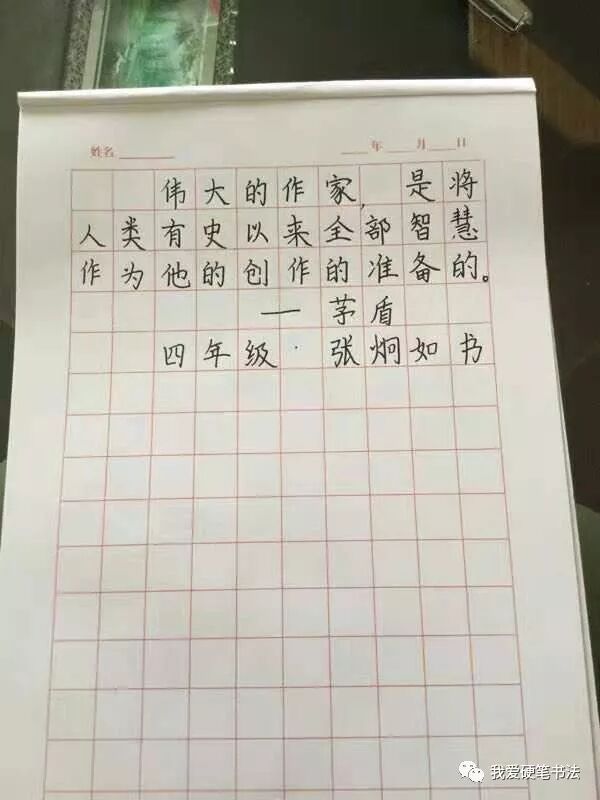 姓名______ ____年____月____日
伟大的作家,是将
人类有史以来全部智慧
作为他的创作的准备的。
——茅盾
四年级·张炯如书
我爱硬笔书法